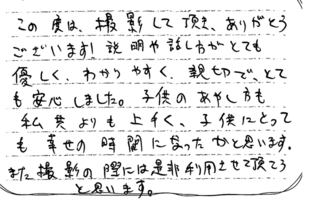 この度は、撮影して頂き、ありがとう
ございます!説明や話し方がとても
優しく、わかりやすく、親切で、とて
も安心しました。子供のあやし方も
私共よりも上手く、子供にとって
も幸せの時間になったかと思います。
また撮影の際には是非利用させて頂こう
と思います。